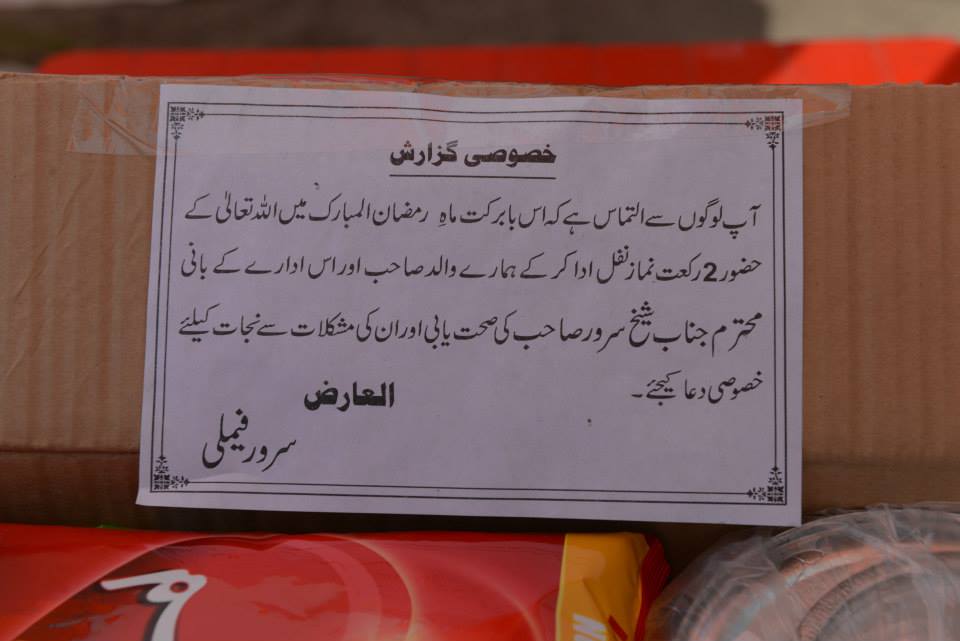 خصوصی گزارش
آپ لوگوں سے التماس ہے کہ اس بابرکت ماہِ رمضان المبارک میں اللہ تعالیٰ کے
حضور 2 رکعت نماز نفل ادا کر کے ہمارے والد صاحب اور اس ادارے کے بانی
محترم جناب شیخ سرور صاحب کی صحت یابی اور ان کی مشکلات سے نجات کیلئے
خصوصی دعا کیجئے۔
العارض
سرور فیملی